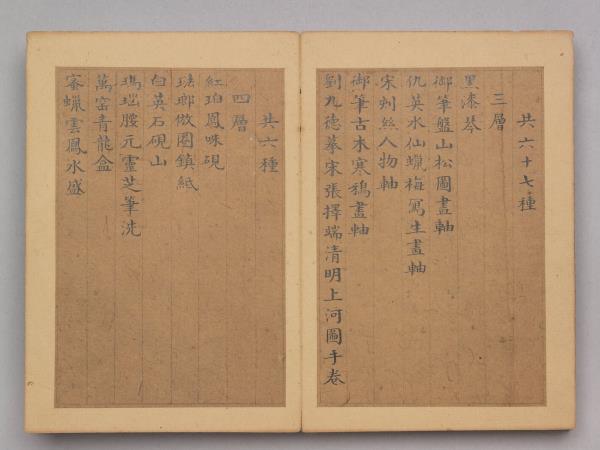 共六十七種
三層
黑漆琴
御筆盤山松圖畫軸
仇英水仙蠟梅寫生畫軸
宋刻絲人物軸
御筆古木寒鴉畫軸
劉九德摹宋張擇端清明上河圖手卷
共六種
四層
紅珀鳳咮硯
琺瑯倣圈鎮紙
白英石硯山
瑪瑙腰元靈芝筆洗
萬窑青龍盒
蜜蠟雲鳳水盛